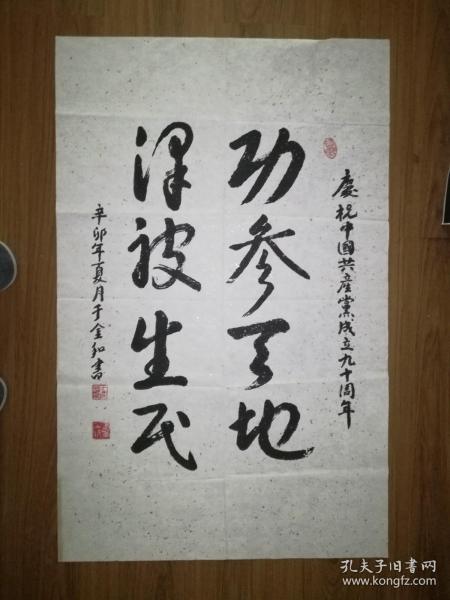 慶祝中國共産黨成立九十周年
功參天地
澤被生民
辛卯年夏月于金和書
孔夫子旧书网
www.kongfz.com